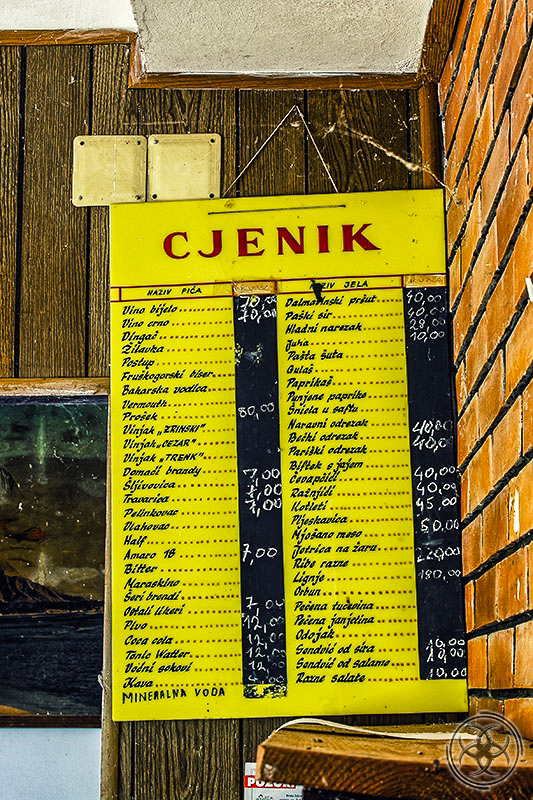 CJENIK
NAZIV PIĆA
Vino bijelo
Vino crno
Dingač
Žilavka
Postup
Fruškogorski biser
Bakarska vodica
Vermouth
Prošek 80,00
Vinjak „ZRINSKI"
Vinjak „CEZAR"
Vinjak „TRENK"
Domaći brandy
Šljivovica 7,00
Travarica 7,00
Pelinkovac 7,00
Vlahovac
Half
Amaro 18 7,00
Bitter
Maraskino
Seri brendi
Ostali likeri 7,00
Pivo 12,00
Coca cola 12,00
Tonic Watter 12,00
Voćni sokovi 12,
Kava
MINERALNA VODA
NAZIV JELA
Dalmatinski pršut 40,00
Paški sir 40,00
Hladni narezak 28,00
Juha 10,00
Pašta šuta
Gulaš
Paprikaš
Punjene paprike
Šnicla u saftu
Naravni odrezak 40,00
Bečki odrezak 40,00
Pariški odrezak
Biftek s jajem
Ćevapčići 40,00
Ražnjići 40,00
Kotleti 45,00
Pljeskavica 50,00
Mješano meso
Jetrica na žaru
Ribe razne 220,00
Lignje 180,00
Orbun
Pečena tučevina
Pečena janjetina
Odojak
Sendvić od sira 10,00
Sendvić od salame 10,00
Razne salate 10,00
POZOR